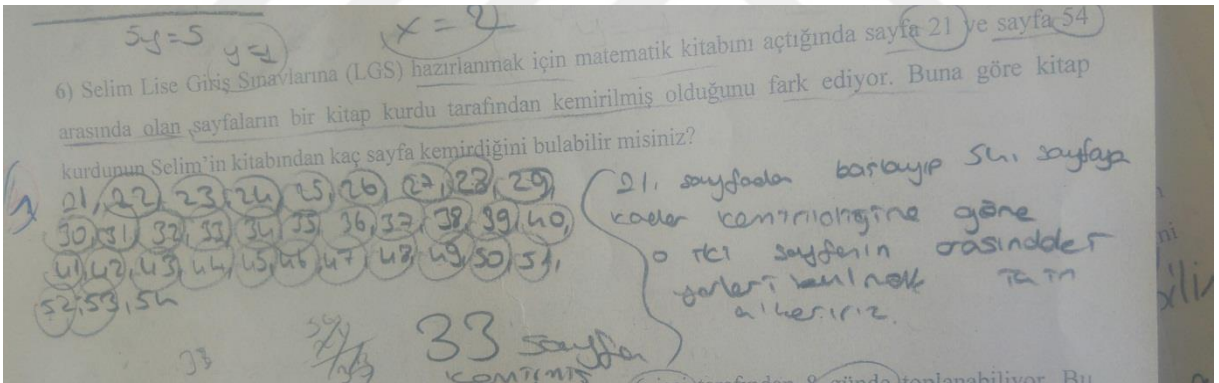 5y=5
y=1
x = 2
6) Selim Lise Giriş Sınavlarına (LGS) hazırlanmak için matematik kitabını açtığında sayfa 21 ve sayfa 54
arasında olan sayfaların bir kitap kurdu tarafından kemirilmiş olduğunu fark ediyor. Buna göre kitap
kurdunun Selim'in kitabından kaç sayfa kemirdiğini bulabilir misiniz?
21, 22, 23, 24, 25, 26, 27, 28, 29,
30, 31, 32, 33, 34, 35, 36, 37, 38, 39, 40,
41, 42, 43, 44, 45, 46, 47, 48, 49, 50, 51,
52, 53, 54
33 sayfa
kemirmiş
33
21. sayfadan başlayıp 54. sayfaya
kadar kemirildiğine göre
o iki sayfanın arasındaki
yerleri bulmak için
çıkarırız.
9 günde toplanabiliyor. Bu